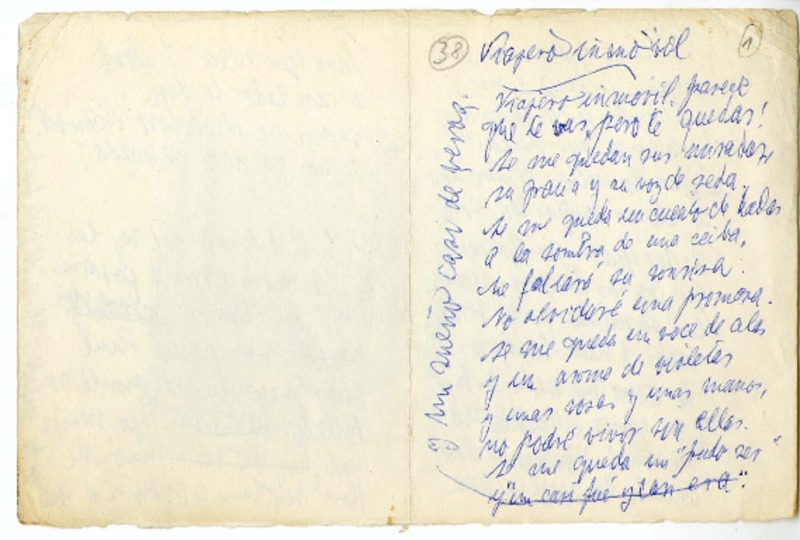 38 Viajero inmóvil 1
Viajero inmóvil. parece
que te vas, pero te quedas!
Se me quedan sus miradas,
su gracia y su voz de seda.
Se me queda un cuento de hadas
a la sombra de una ceiba,
Me faltará su sonrisa.
No olvidaré una promesa.
Se me queda un roce de alas
y un aroma de violetas
y unas rosas y unas manos,
no podré vivir sin ellas.
Se me queda un "pudo ser"
y un casi fué y casi era".
y un sueño casi de veras.